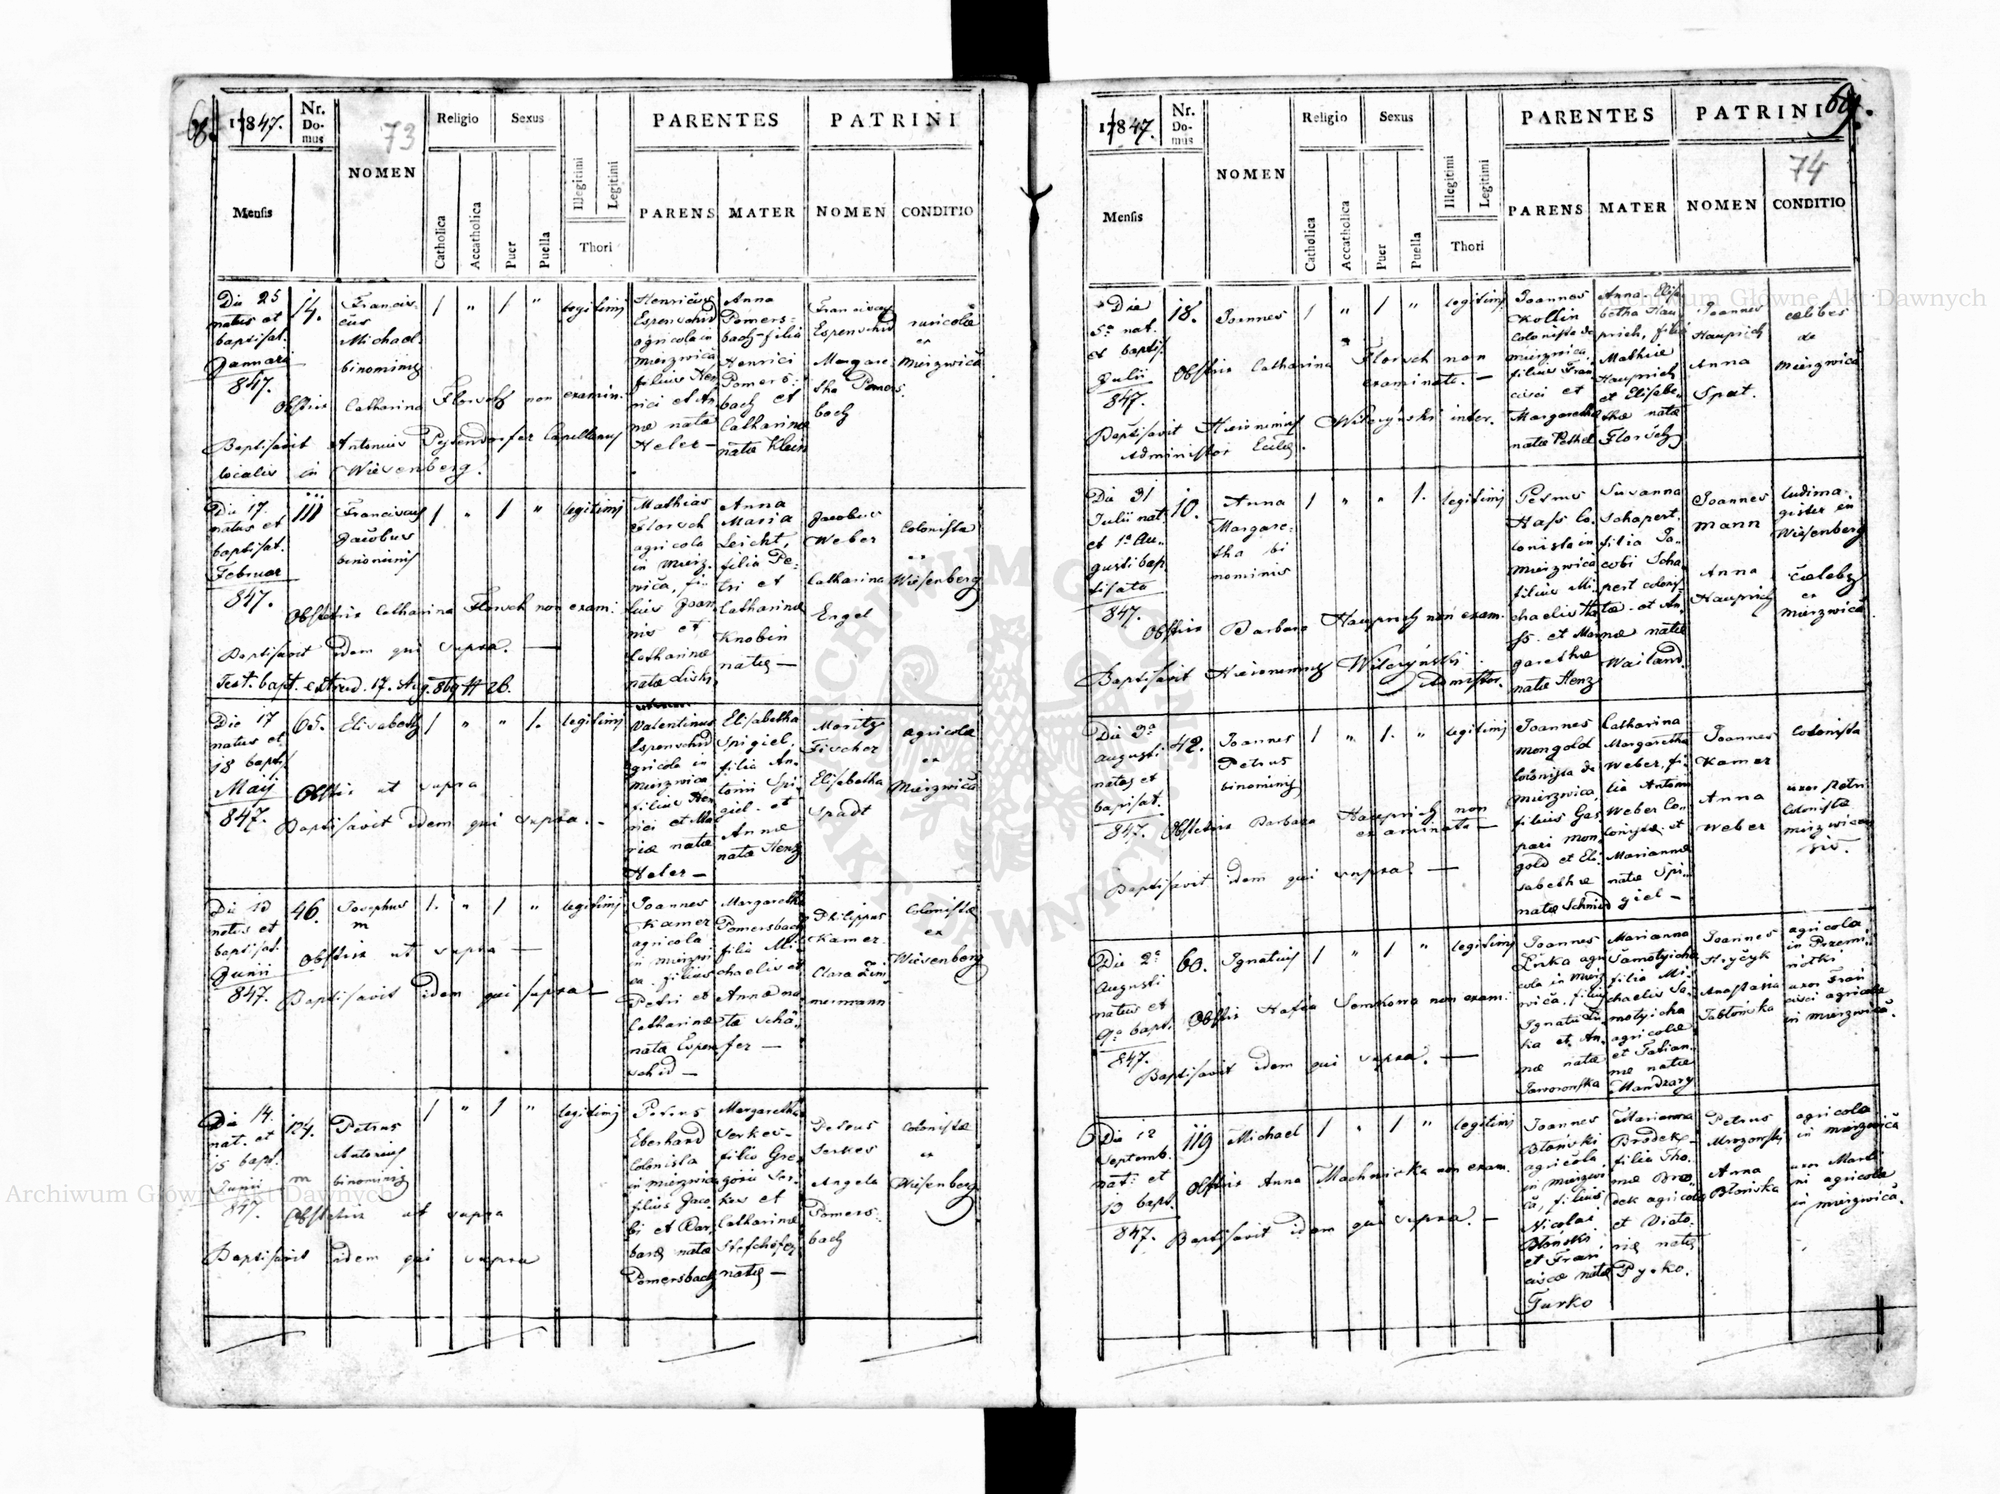 68.
1847.
Nr. Domus
73
NOMEN
Religio
Sexus
Illegitimi
Legitimi
PARENTES
PATRINI
Mensis
Catholica
Accatholica
Puer
Puella
Thori
PARENS
MATER
NOMEN
CONDITIO
Die 25
natus et
baptisat.
Januarii
847.
14.
Francis-
cus
Michael
binominis
1 " 1 "
legitimi
Henricus
Espenschid
agricola in
Mierzwica
filius Hen
rici et An
næ nata
Heler —
Anna
Pomers-
bach filia
Henrici
Pomers-
bach et
Catharinæ
natæ Klein
Franciscus
Espenschid
Margare-
tha Pomers
bach
ruricolæ
ex
Mierzwica
Obstetrix Catharina Florsch non examin.
Baptisavit Antonius Capellanus
localis in Wiesenberg.
Die 17
natus et
baptisat.
Februar
847.
111
Franciscus
Jacobus
binominis
1 " 1 "
legitimi
Mathias
Florsch
agricola
in Mierz-
wica, fi-
lius Joan
nis et
Catharinæ
natæ
Anna
Maria
Leicht,
filia Pe-
tri et
Catharinæ
Knobin
natæ —
Jacobus
Weber
Catharina
Engel
Colonistæ
ex
Wiesenberg
Obstetrix Catharina Florsch non exam:
Baptisavit idem qui supra. —
Test. bapt. extrad. 17. Aug. 869 # 26.
Die 17
natus et
18 bapt.
Maij
847.
65.
Elisabeth
1 " " 1.
legitimi
Valentinus
Espenschid
agricola in
Mierzwica
filius Hen
rici et Ma
riæ natæ
Heler —
Elisabetha
Spigiel,
filia An-
tonii Spi-
giel et
Annæ
natæ Henz
Moritz
Fischer
Elisabetha
Spadt
agricolæ
ex
Mierzwica
Obstetrix ut supra
Baptisavit idem qui supra. —
Die 13
natus et
baptisat.
Junii
847.
46.
Josephus
m
1. " 1 "
legitimi
Joannes
Kamer
agricola
in Mierzwi
ca, filius
Petri et
Catharinæ
natæ Espen
schid —
Margaretha
Pomersbach
filia Mi-
chaelis et
Annæ na
tæ Schä-
fer —
Philippus
Kamer
Clara Zim
mermann
Colonistæ
ex
Wiesenberg
Obstetrix ut supra —
Baptisavit idem qui supra —
Die 14.
nat. et
15 bapt.
Junii
847.
124.
m
Petrus
Antonius
binominis
1 " 1 "
legitimi
Petrus
Eberhard
Colonista
in Mierzwica
filius Jaco
bi et Bar
baræ natæ
Pomersbach
Margaretha
Serkes-
filia Gre-
gorii Ser-
kes et
Catharinæ
natæ —
Petrus
Serkes
Angela
Pomers-
bach
Colonistæ
ex
Wiesenberg
Obstetrix ut supra
Baptisavit idem qui supra
69.
1847.
Nr. Domus
74
NOMEN
Religio
Sexus
Illegitimi
Legitimi
PARENTES
PATRINI
Mensis
Catholica
Accatholica
Puer
Puella
Thori
PARENS
MATER
NOMEN
CONDITIO
Die
5ª nat.
et baptis.
Julii
847.
18.
Joannes
1 " 1 "
legitimi
Joannes
Kollin
Colonista de
Mierzwica,
filius Fran
cisci et
Margaretha
nata
Anna Elisa
betha Hau
prich, filia
Mathiæ
Hauprich
et Elisabe-
thæ natæ
Florsch
Joannes
Hauprich
Anna
Spat.
cælibes
de
Mierzwica
Obstetrix Catharina Florsch non
examinata. —
Baptisavit Hieronimus Wilczyński inter.
Administor Eccl.
Die 31
Julii nat.
et 1ª Au-
gusti bap
tisata
847.
10.
Anna
Margare-
tha bi
nominis
1 " " 1.
legitimi
Petrus
Hass co-
lonista in
Mierzwica
filius Mi-
chaelis Ha
ss et Mar
garethæ
natæ Henz
Susanna
Schapert
filia Ja-
cobi Scha-
pert colonis
tæ et An-
næ natæ
Wailand.
Joannes
Mann
Anna
Hauprich
ludima-
gister in
Wiesenberg
Cælebs
ex
Mierzwica
Obstetrix Barbara Hauprich non exam.
Baptisavit Hieronimus Wilczyński
Admistor.
Die 2ª
Augusti
natus et
bapisat.
847.
42.
Joannes
Petrus
binominis
1 " 1. "
legitimi
Joannes
Mongold
Colonista de
Mierzwica,
filius Gas
pari Mon
gold et Eli
sabethæ
natæ Schmid
Catharina
Margaretha
Weber, fi-
lia Antonii
Weber co-
lonistæ et
Mariannæ
natæ Spi-
giel —
Joannes
Kamer
Anna
Weber
Colonista
uxor Petri
Colonistæ
Obstetrix Barbara Hauprich non
examinata —
Baptisavit idem qui supra —
Die 2ª
Augusti
natus et
9ª bapt.
847.
60.
Ignatius
1 " 1 "
legitimi
Joannes
agri
cola in Mierz
wica, filius
Ignatii
et An-
næ natæ
Jaworonska
Marianna
Samotyicha
filia Mi-
chaelis Sa-
motyicha
agricolæ
et Tatian-
næ natæ
Mandzary
Joannes
Hryćyk
Anastasia
Jabłońska
agricola
in Przemi-
wolki
uxor Fran
cisci agricolæ
in Mierzwica.
Obstetrix Semkowa non exam:
Baptisavit idem qui supra. —
Die 12
Septemb.
nat: et
13 bapt.
847.
119
Michael
1 " 1 "
legitimi
Joannes
Błoński
agricola
in Mierzwi
ca, filius
Nicolai
Błoński
et Fran
ciscæ natæ
Turko
Marianna
Brodek-
filia Tho-
mæ Bro-
dek agricolæ
et Victo-
riæ natæ
Pyrko.
Petrus
Anna
Błońska
agricola
in Mierzwica
uxor Marti
ni agricolæ
in Mierzwica.
Obstetrix Anna Machnicka non exam.
Baptisavit idem qui supra. —
Archiwum Główne Akt Dawnych
Archiwum Główne Akt Dawnych
ARCHIWUM GŁÓWNE AKT DAWNYCH